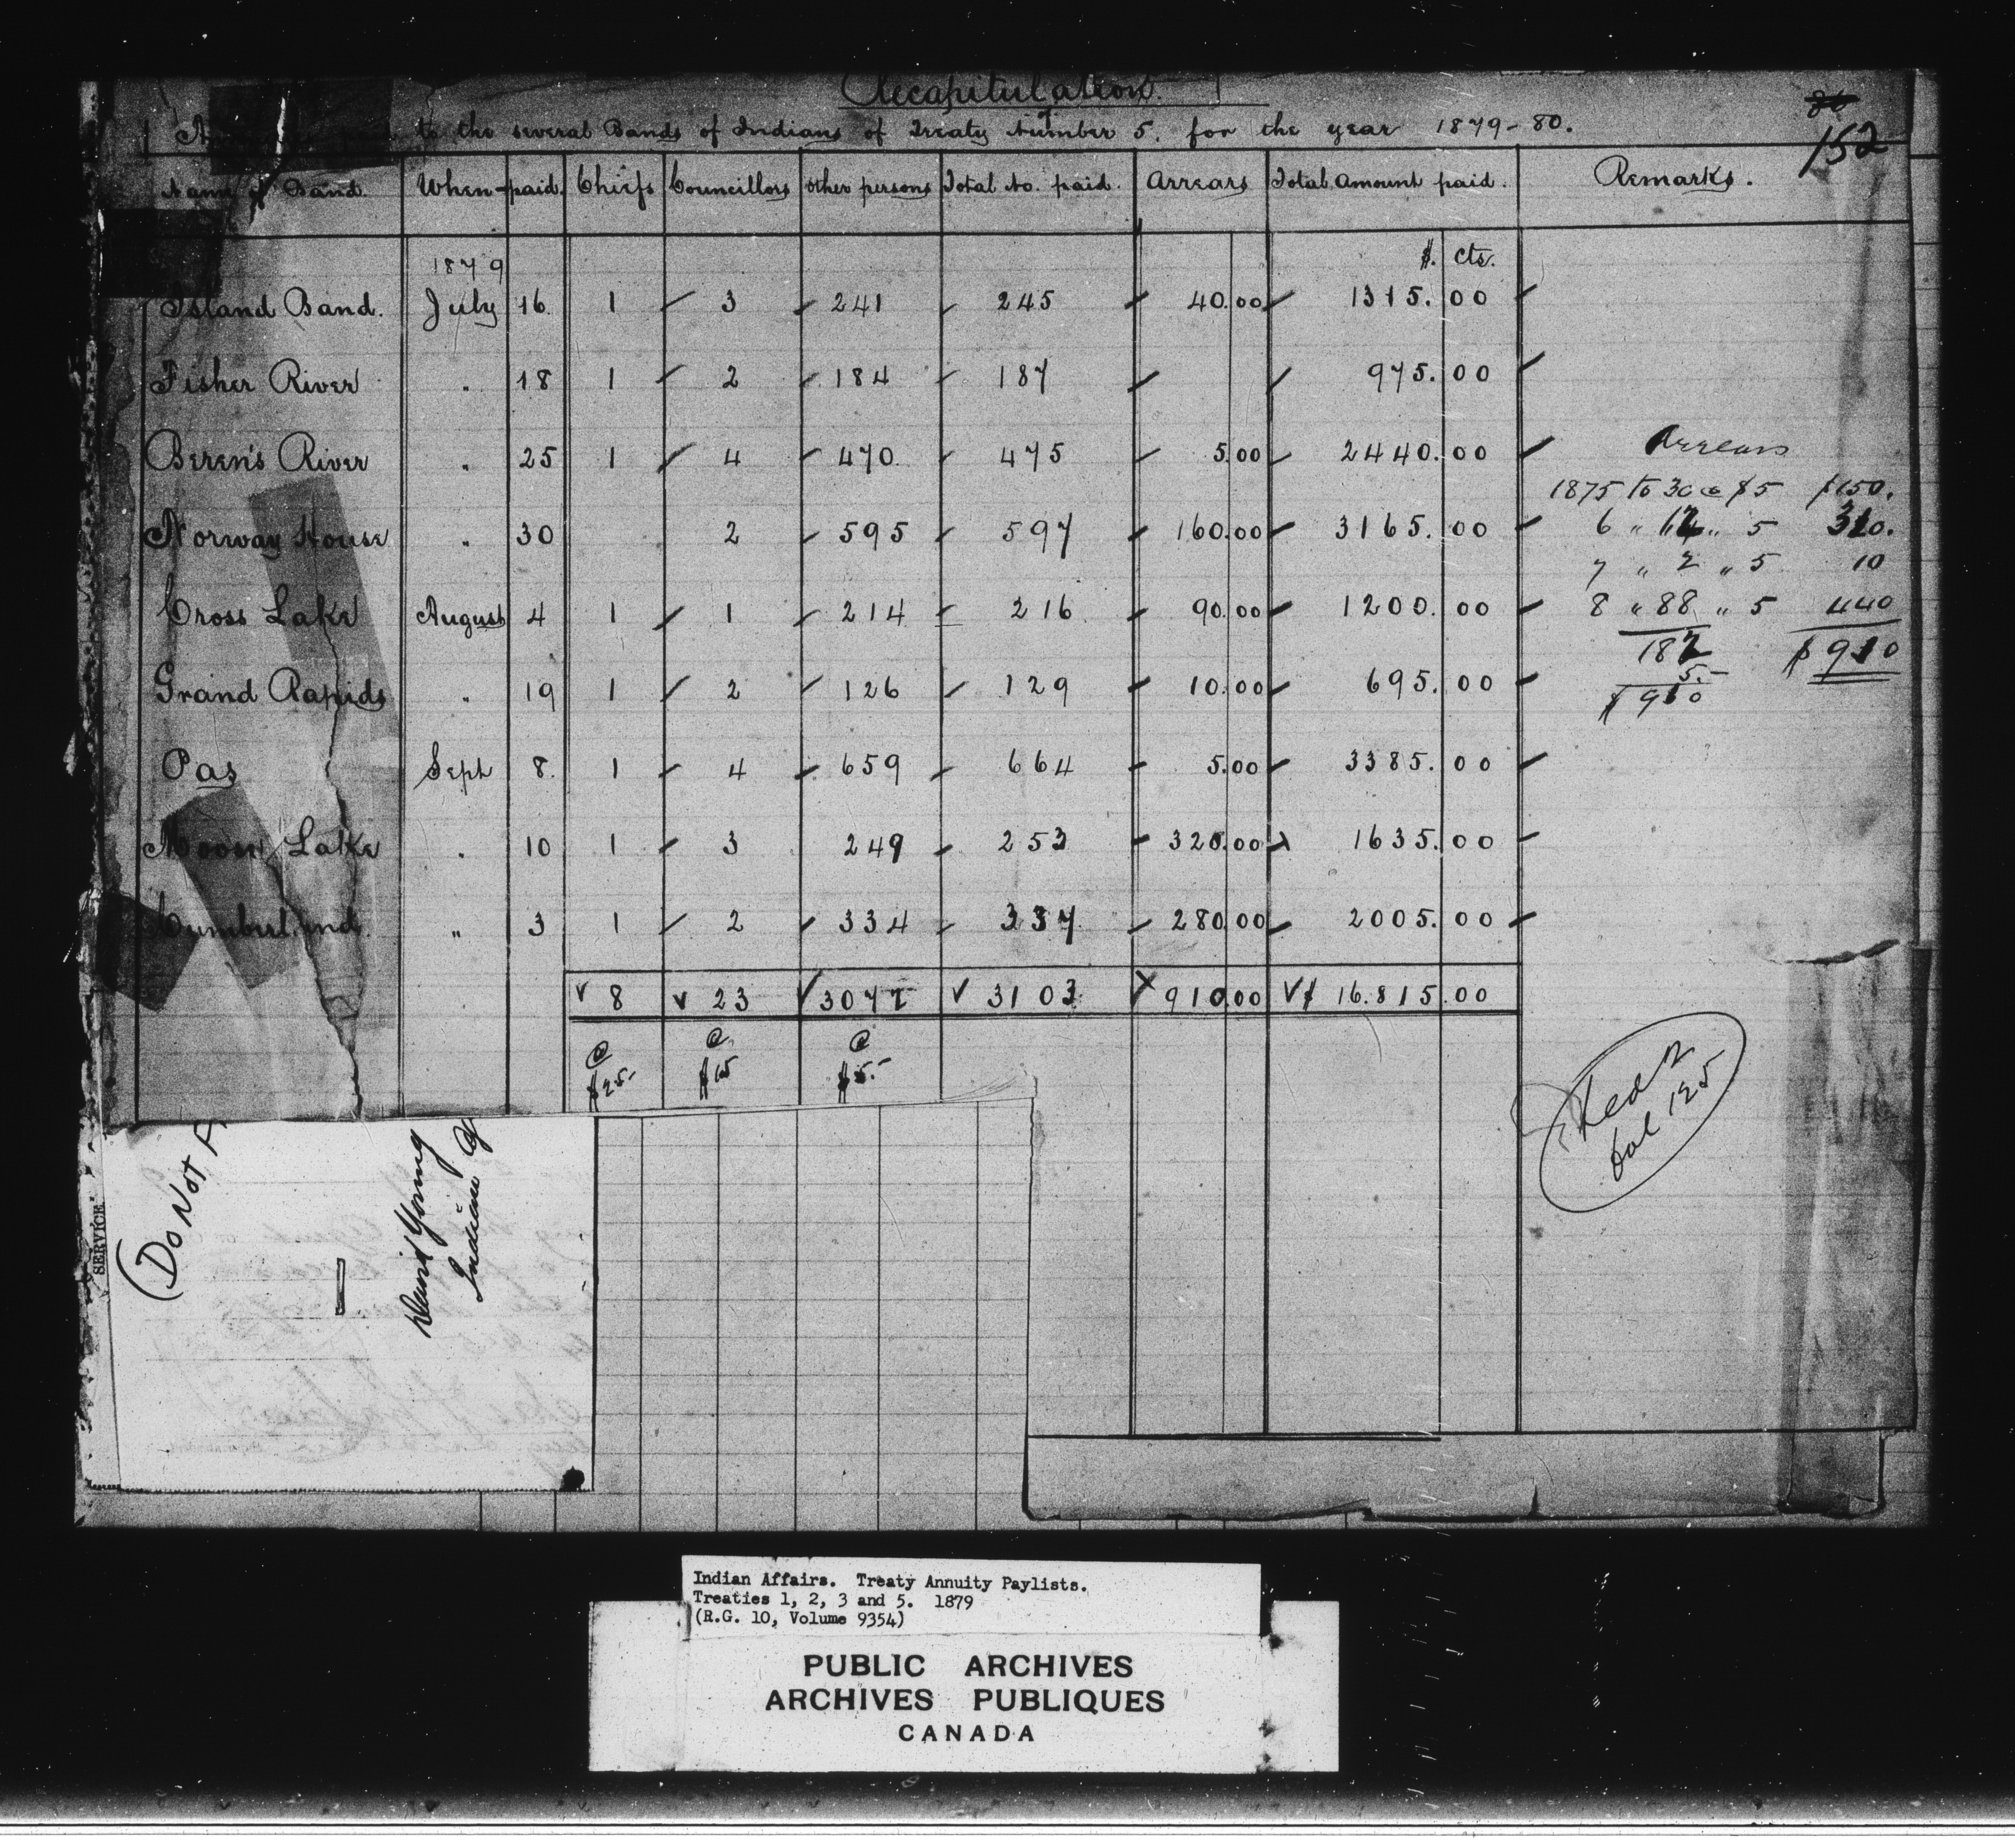 Recapitulation
to the several Bands of Indians of Treaty Number 5. for the year 1879-80.
152
Name of Band. When paid. Chiefs Councillors Other persons Total No. paid. Arrears Total Amount paid. Remarks.
1879 $. cts.
Island Band. July 16 1 3 241 245 40.00 1315.00
Fisher River " 18 1 2 184 187 975.00
Beren's River " 25 1 4 470 475 5.00 2440.00
Norway House " 30 2 595 597 160.00 3165.00
Cross Lake August 4 1 1 214 216 90.00 1200.00
Grand Rapids " 19 1 2 126 129 10.00 695.00
Pas Sept 8. 1 4 659 664 5.00 3385.00
Moose Lake " 10 1 3 249 253 320.00 1635.00
Cumberland " 3 1 2 334 337 280.00 2005.00
8 23 3072 3103 910.00 $ 16.815.00
@ @ @
$25- $15 $5.-
Arrears
1875 to 30 @ $5 $150.
6 " 62 " 5 310.
7 " 2 " 5 10
8 " 88 " 5 440
182 $910
5.-
$910
(Do Not F
David Young
Indian
SERVICE
Indian Affairs. Treaty Annuity Paylists.
Treaties 1, 2, 3 and 5. 1879
(R.G. 10, Volume 9354)
PUBLIC ARCHIVES
ARCHIVES PUBLIQUES
CANADA